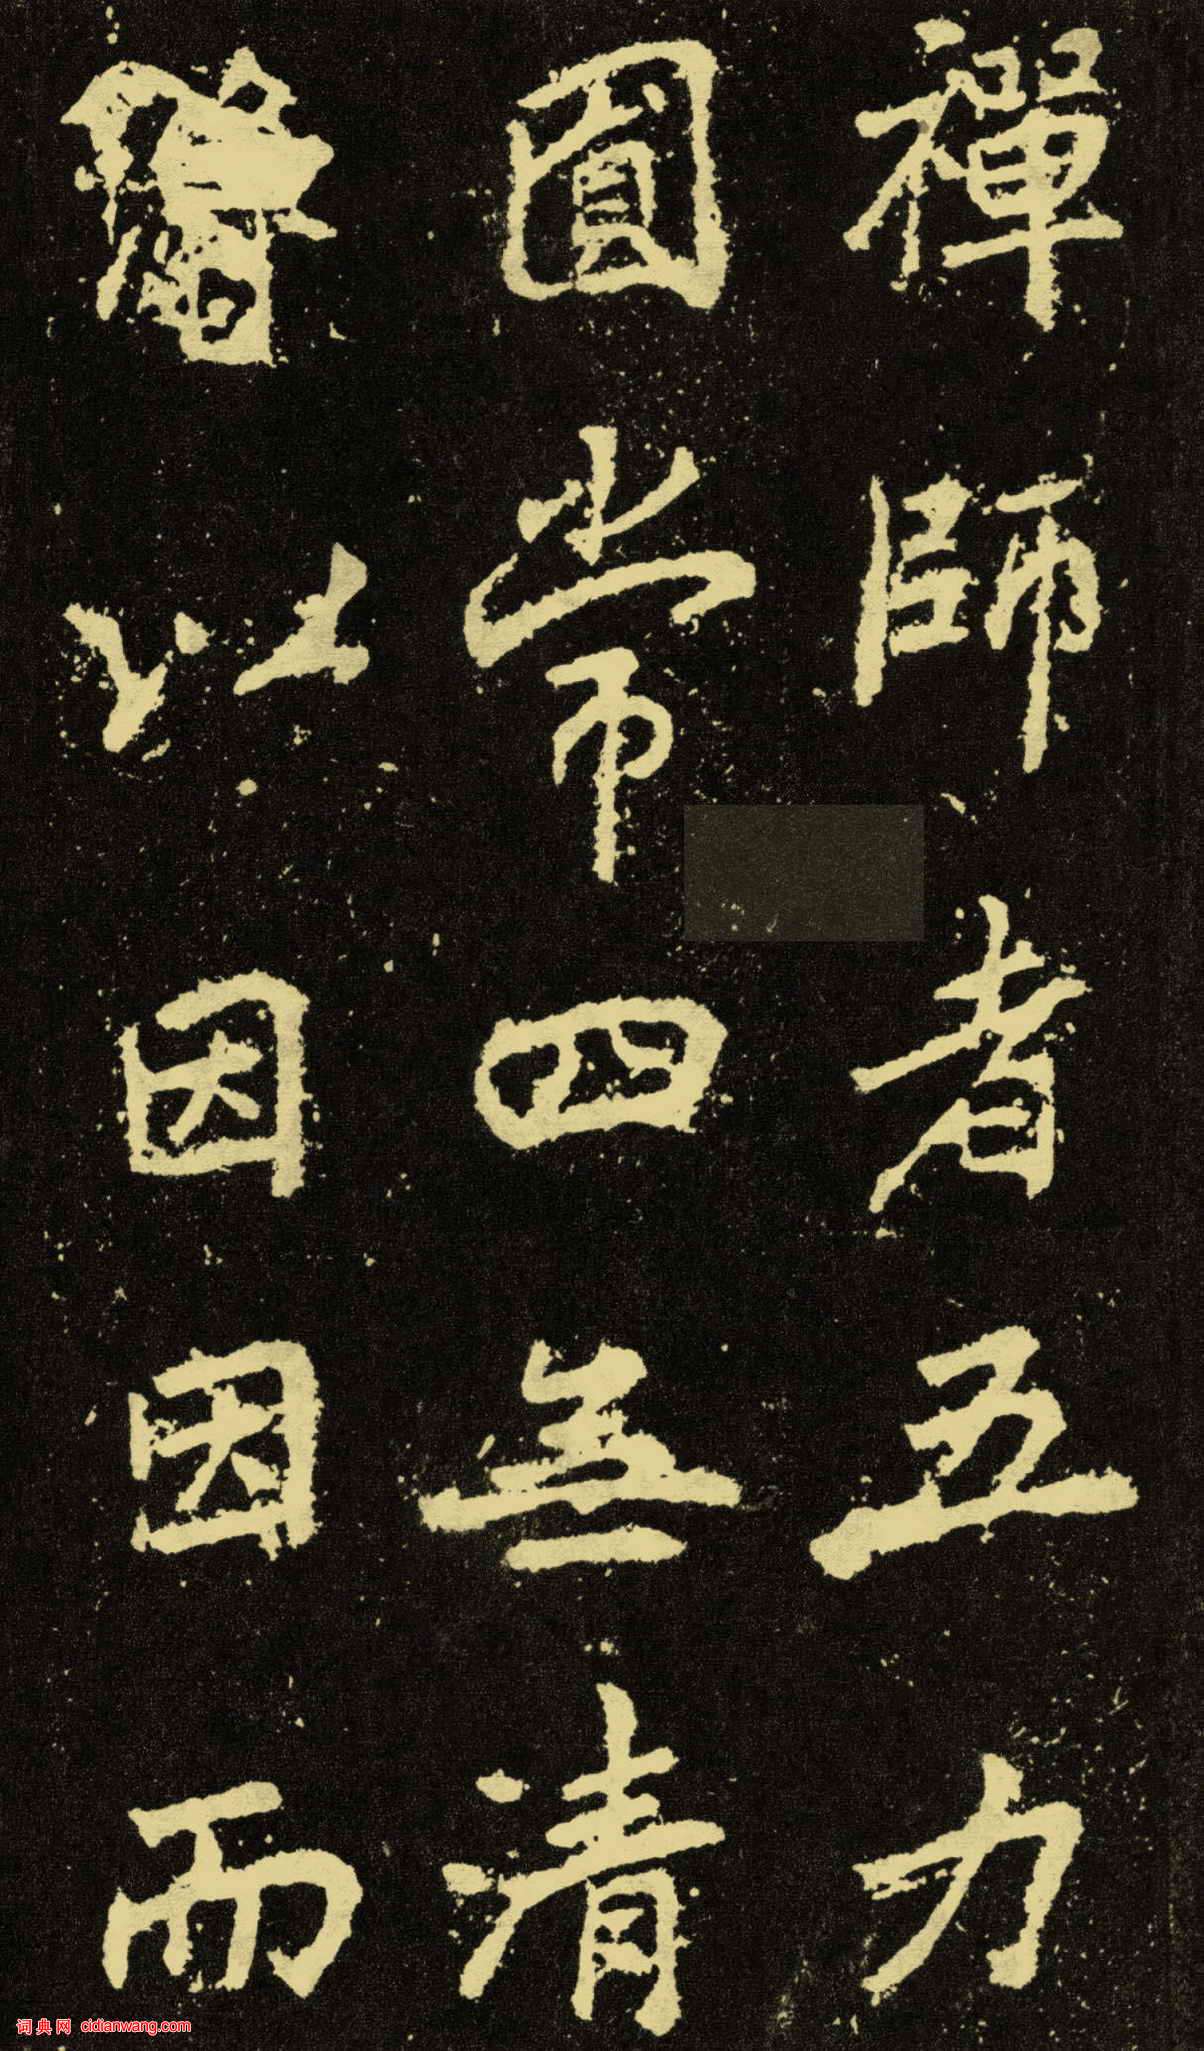 禪師者五力
圓常四無清
以因因而
词典网 cidianwang.com